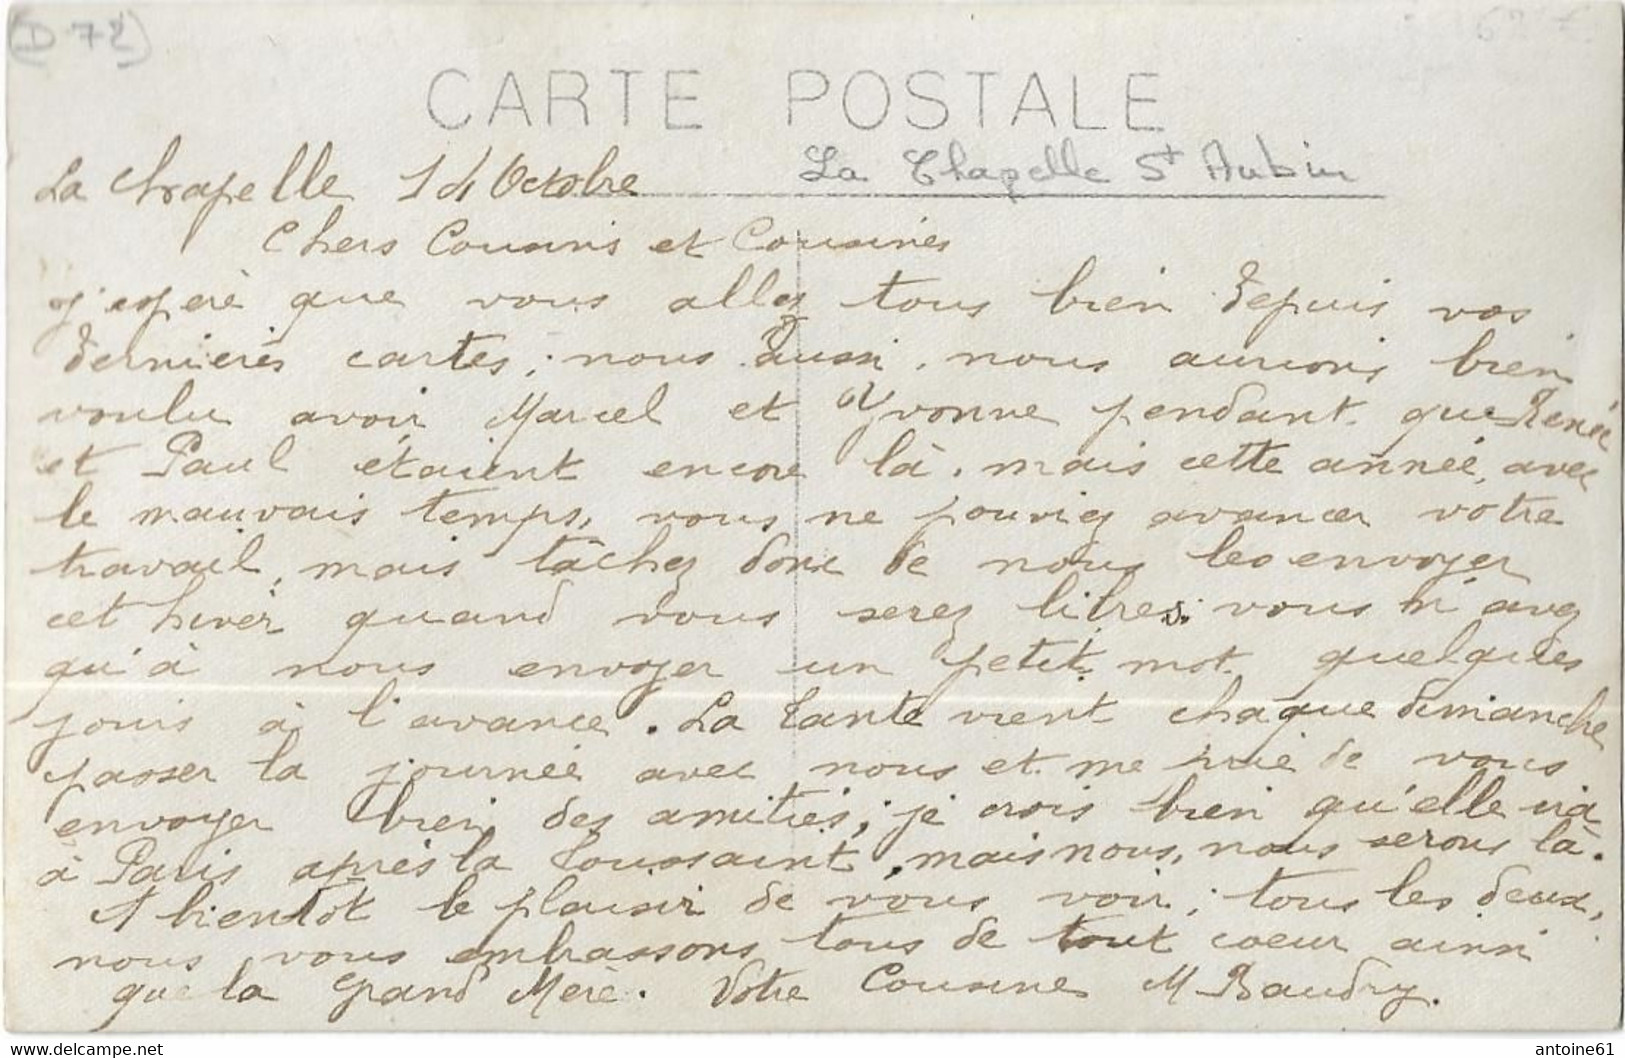 (D 72)
CARTE POSTALE
La Chapelle St Aubin
La Chapelle 14 Octobre
Chers Cousins et Cousines
j'espère que vous allez tous bien depuis vos
dernières cartes; nous aussi. nous aurions bien
voulu avoir Marcel et Yvonne pendant que René
et Paul étaient encore là. mais cette année, avec
le mauvais temps, vous ne pouviez avancer votre
travail, mais tâchez donc de nous les envoyer
cet hiver quand vous serez libres; vous n'avez
qu'à nous envoyer un petit mot quelques
jours à l'avance. La Tante vient chaque dimanche
passer la journée avec nous et me prie de vous
envoyer bien des amitiés; je crois bien qu'elle ira
à Paris après la Toussaint, mais nous, nous serons là.
A bientôt le plaisir de vous voir; tous les deux,
nous vous embrassons tous de tout coeur ainsi
que la Grand Mère. Votre Cousine M Baudry.
antoine61
www.delcampe.net